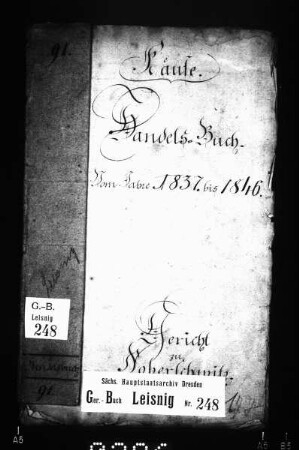 91.
Käufe.
Handels-Buch.
Vom Jahre 1837. bis 1846.
Leisnig
G.-B.
Leisnig
248
Gericht
zu
91.
Sächs. Hauptstaatsarchiv Dresden
Ger.-Buch Leisnig Nr. 248
A5
A5